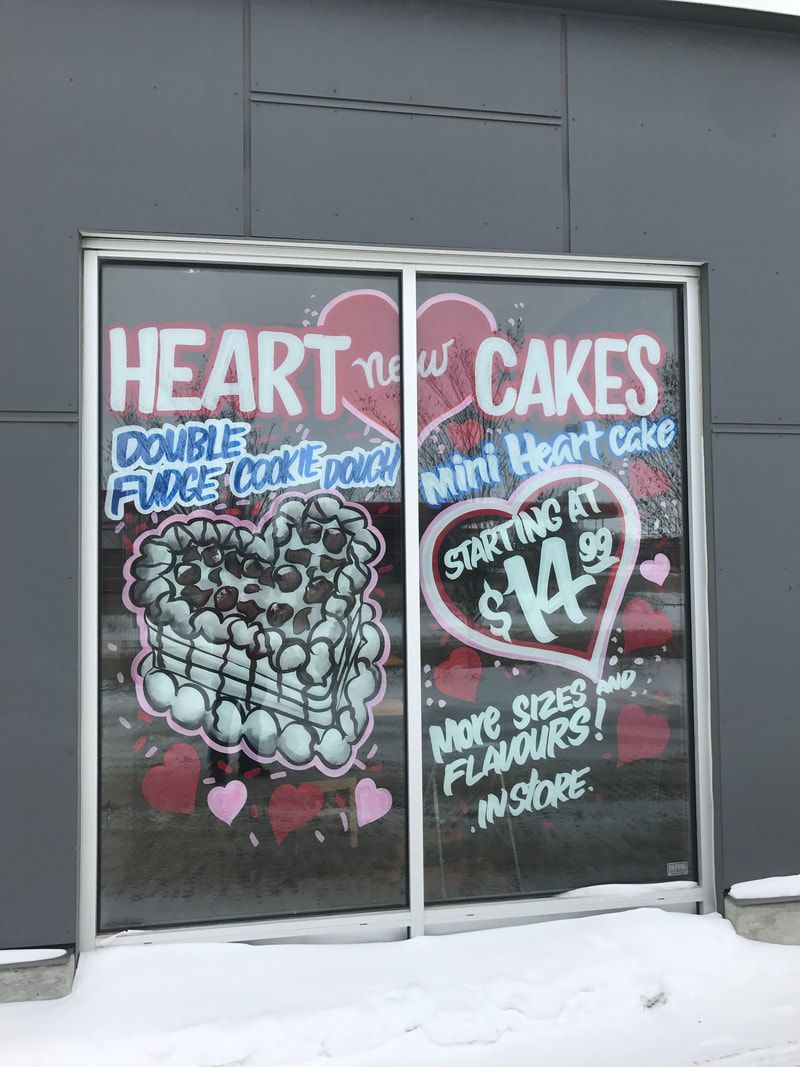 HEART new CAKES
DOUBLE
FUDGE COOKIE DOUGH
mini Heart cake
STARTING AT
$14.99
More SIZES AND
FLAVOURS!
IN STORE.